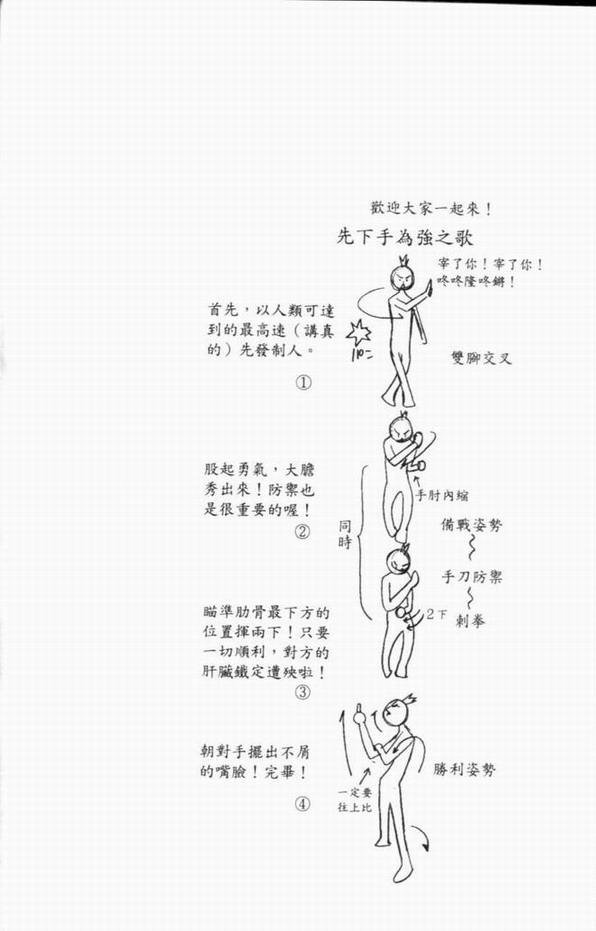 歡迎大家一起來！
先下手為強之歌
宰了你！宰了你！
咚咚隆咚鏘！
首先，以人類可達
到的最高速（講真
的）先發制人。
①
雙腳交叉
股起勇氣，大膽
秀出來！防禦也
是很重要的喔！
②
同時
手肘內縮
備戰姿勢
手刀防禦
2下
刺拳
瞄準肋骨最下方的
位置揮兩下！只要
一切順利，對方的
肝臟鐵定遭殃啦！
③
朝對手擺出不屑
的嘴臉！完畢！
④
一定要
往上比
勝利姿勢